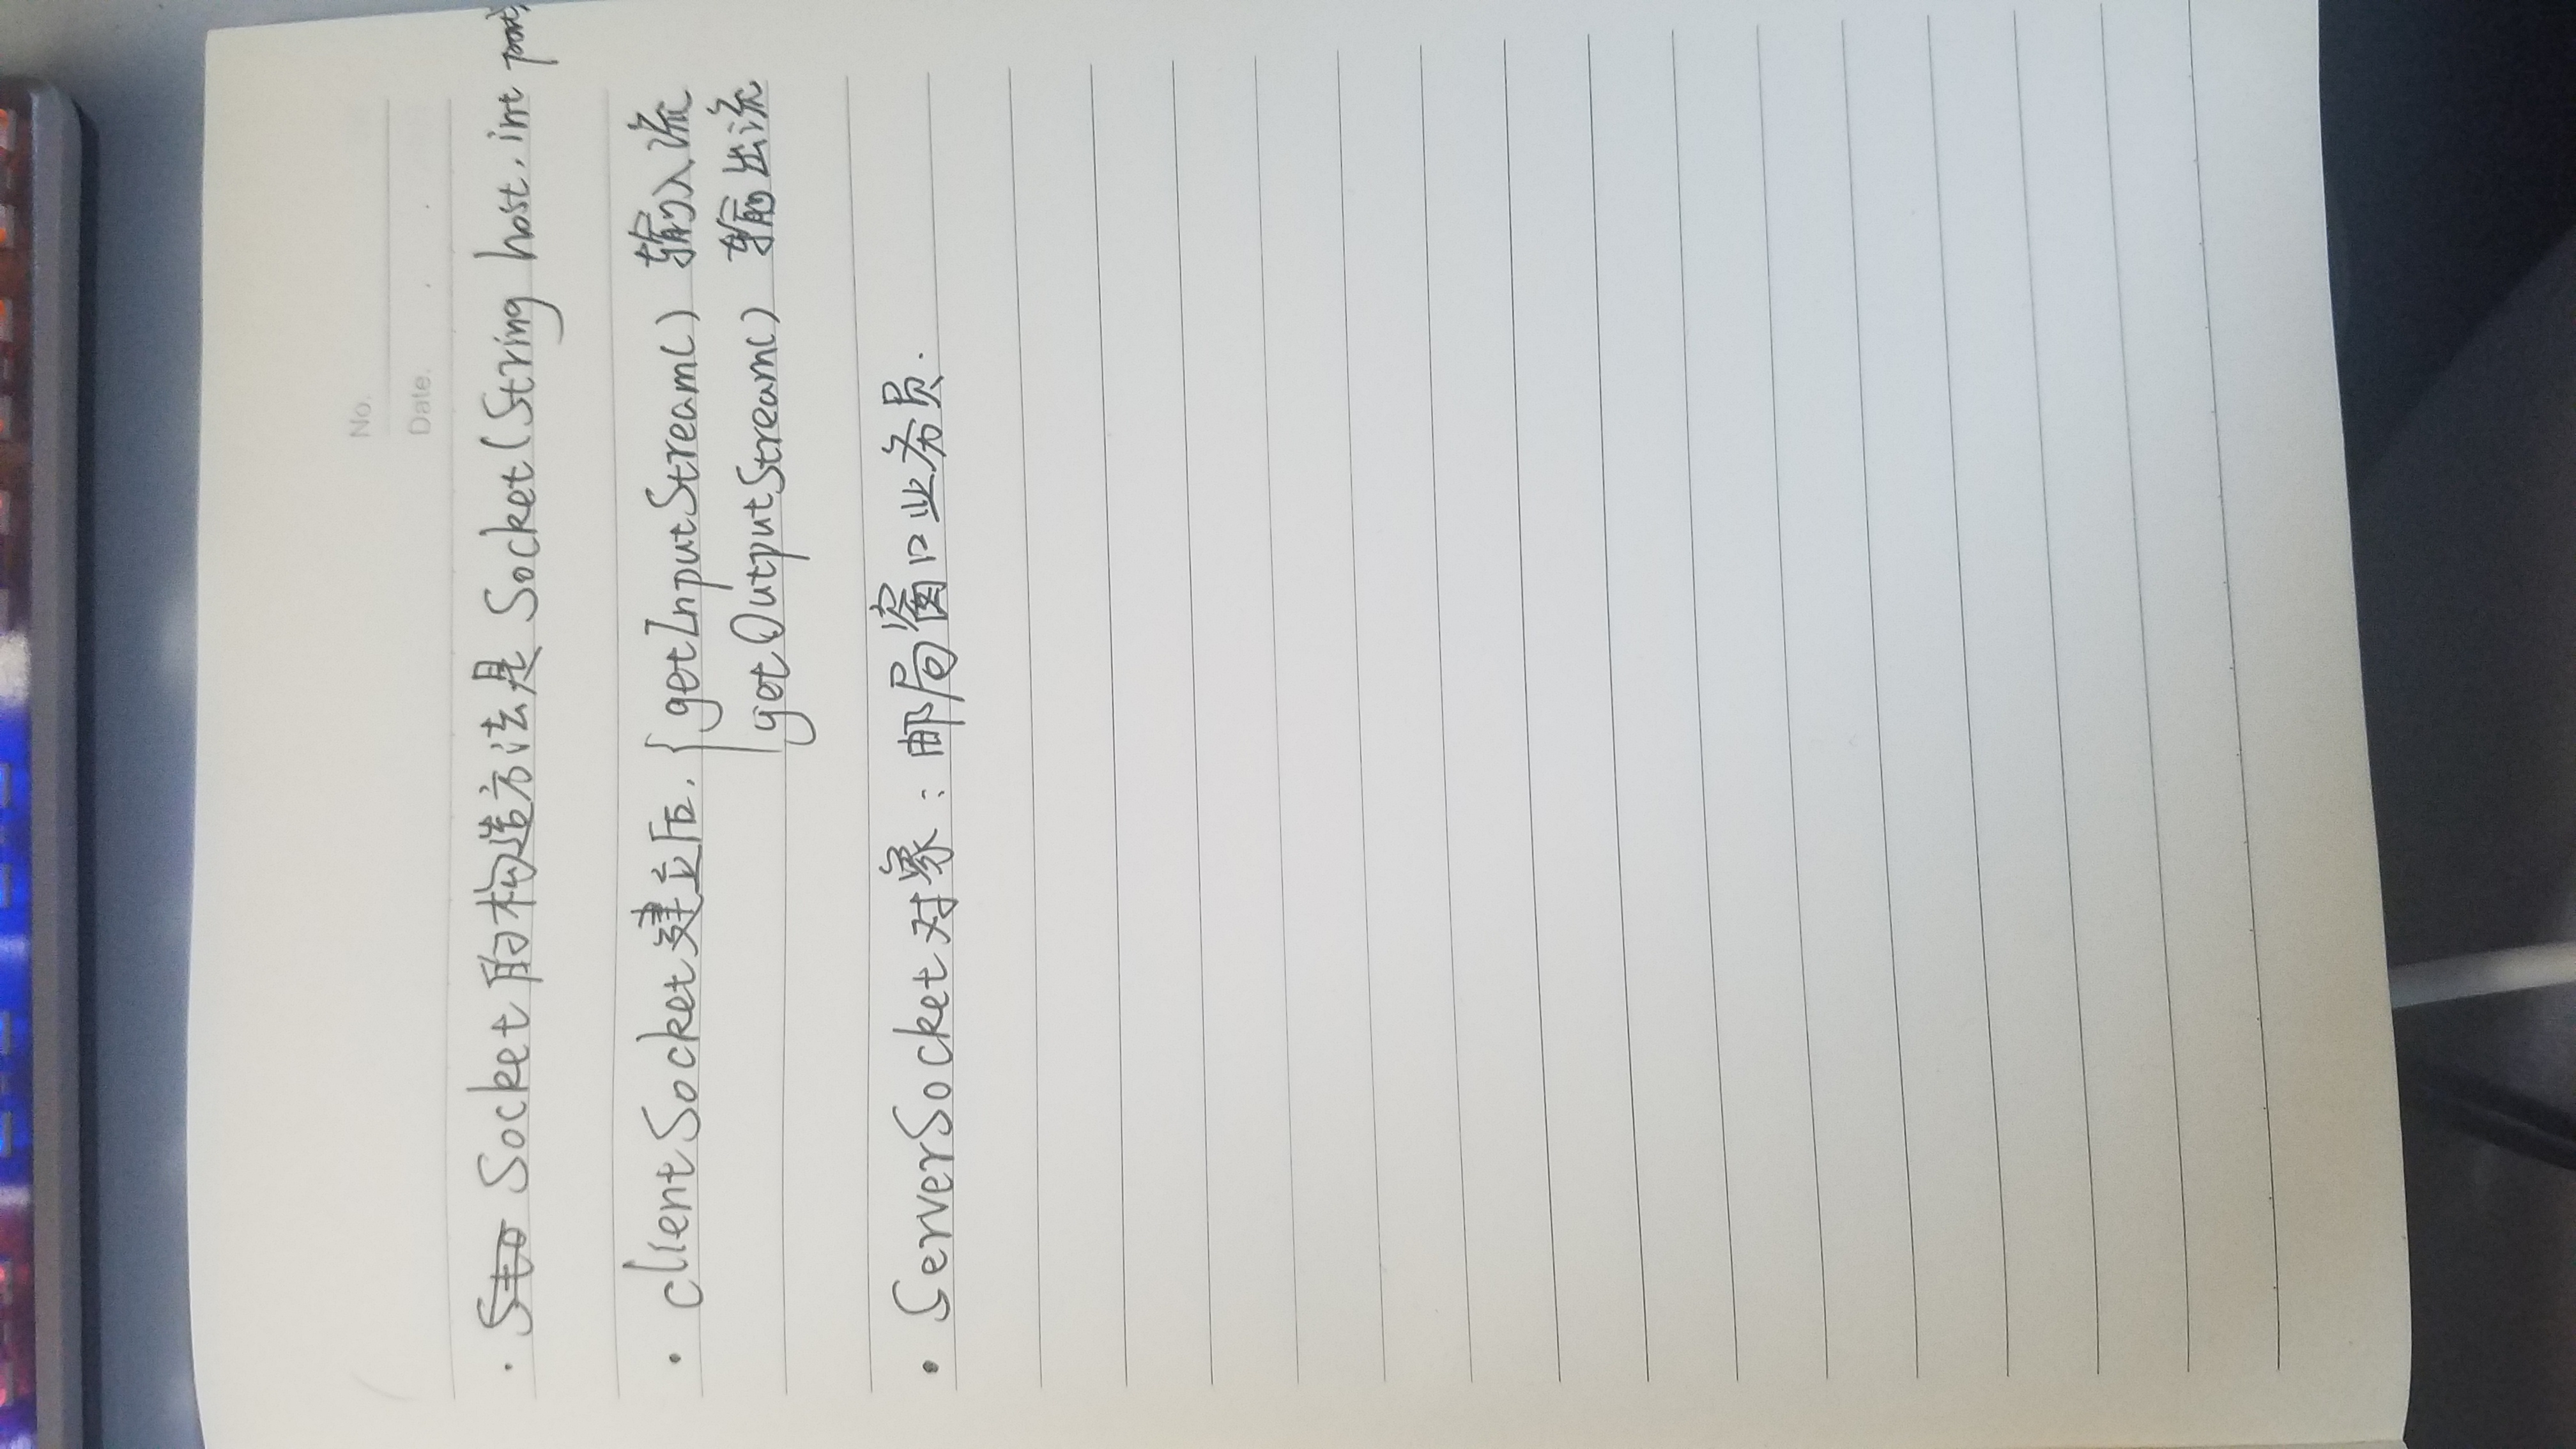 No.
Date.
· Socket的构造方法是Socket(String host, int port)
· clientSocket建立后. { getInputStream() 输入流
getOutputStream() 输出流
· ServerSocket对象：邮局窗口业务员.